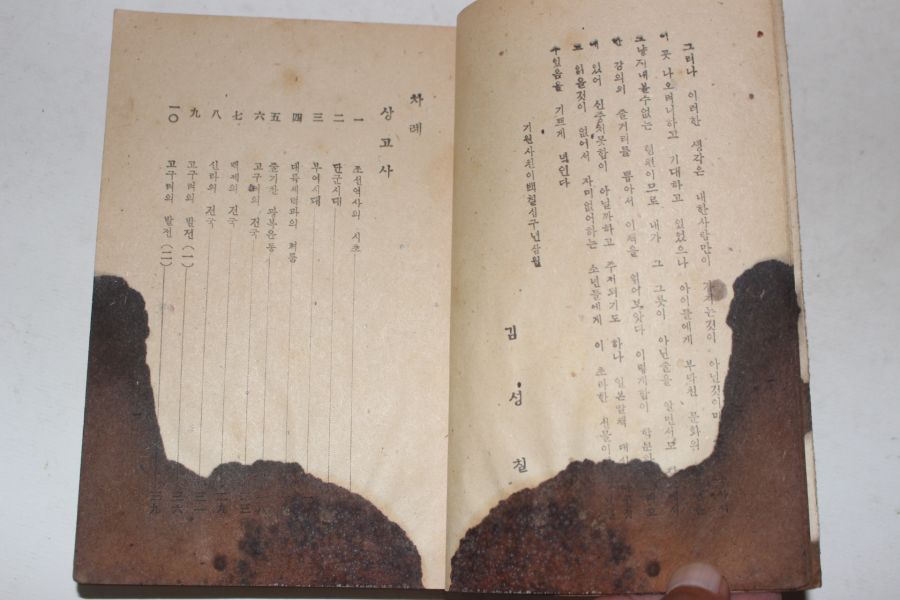 그러나 이러한 생각은 내한사람만이 가지는것이 아닌것이
이 곳 나오려니하고 기대하고 있었으나 아이들에게 부닥친 문화의
그냥지내볼수없는 형편이므로 내가 그릇이 아닌줄을 알면서도
한 강의의 줄거리를 뽑아서 이책을 읽어보았다 이렇게함이 학문
에 있어 신중치못함이 아닐까하고 주저되기도 하나 일본말책 대신
로 읽을것이 없어서 자미없어하는 소년들에게 이 초라한 선물이
수있음을 기쁘게 녁인다
기원사천이백칠십구년삼월
김성칠
차례
상고사
一 조선역사의 시초
二 단군시대
三 부여시대
四 대륙세력과의 겨룸
五 줄기찬 광복운동
六 고구려의 건국
七 백제의 건국
八 신라의 건국
九 고구려의 발전 (一)
一〇 고구려의 발전 (二)